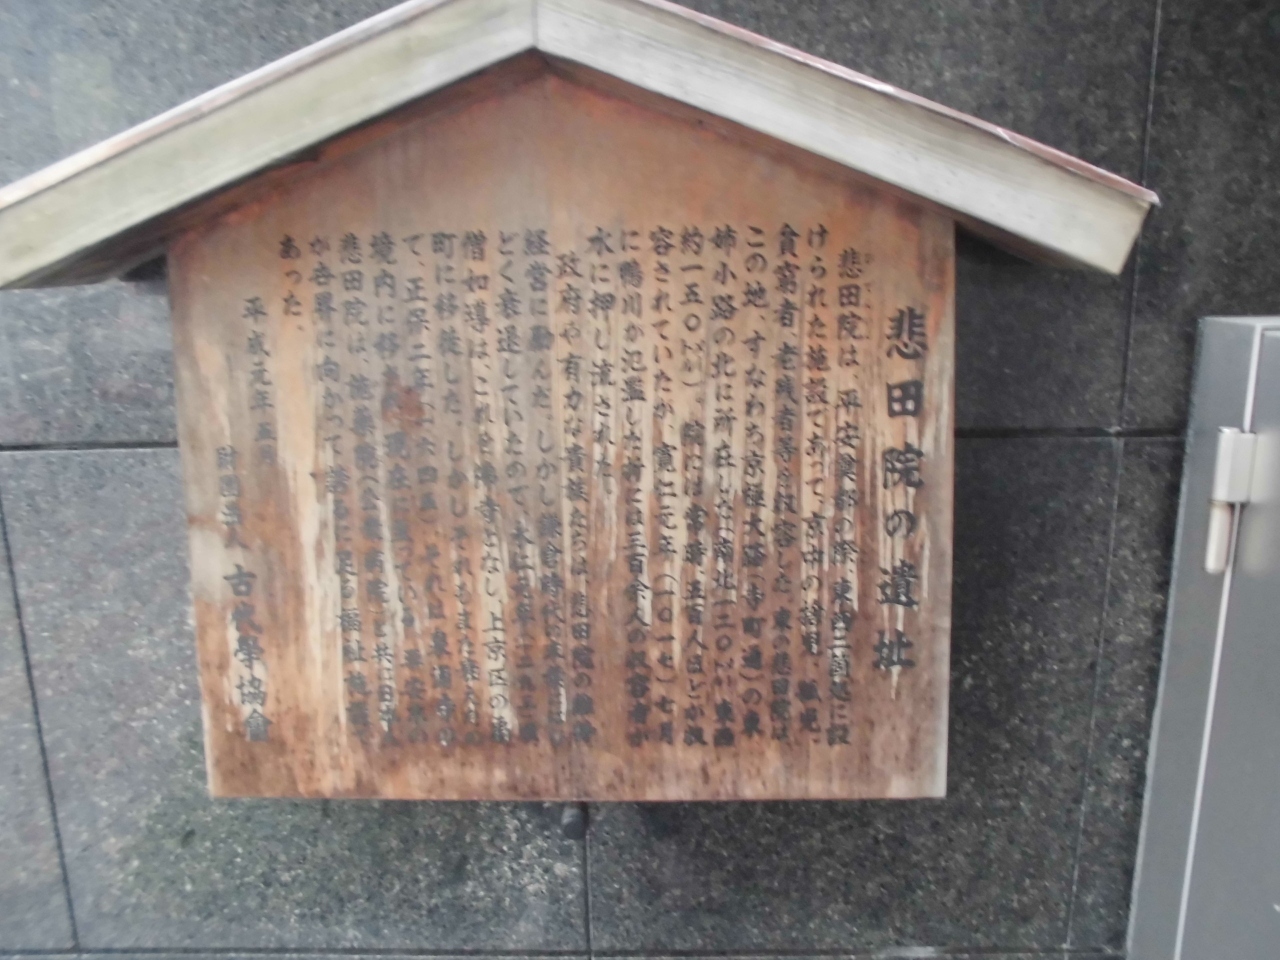 悲田院の遺址
悲田院は、平安奠都の際、東西二箇処に設
けられた施設であって、京中の
貧窮者、老残者等を収容した。東の悲田院は、
この地、すなわち京極大路(寺町通)の東
姉小路の北に所在した(南北一二〇
約一五〇 院には常時、五百人ほどが収
容されていたが、寛仁元年(一〇一七)七月
に鴨川が氾濫した折には三百余人の収容者が
水に押し流された。
政府や有力な貴族たちは、悲田院の維持
経営に勤んだ。しかし鎌倉時代の末
どく衰退していたので、
僧如導は、これを 上京区の
町に移徙した。しかしそれもまた
て、正保二年(一六四五)、それは泉涌寺の
境内に移 現在に至っている。平安京の
悲田院は、施薬院 と共に
が世界に向かって誇るに足る福祉施設で
あった。
平成元年五月
財団法人 古代學協會